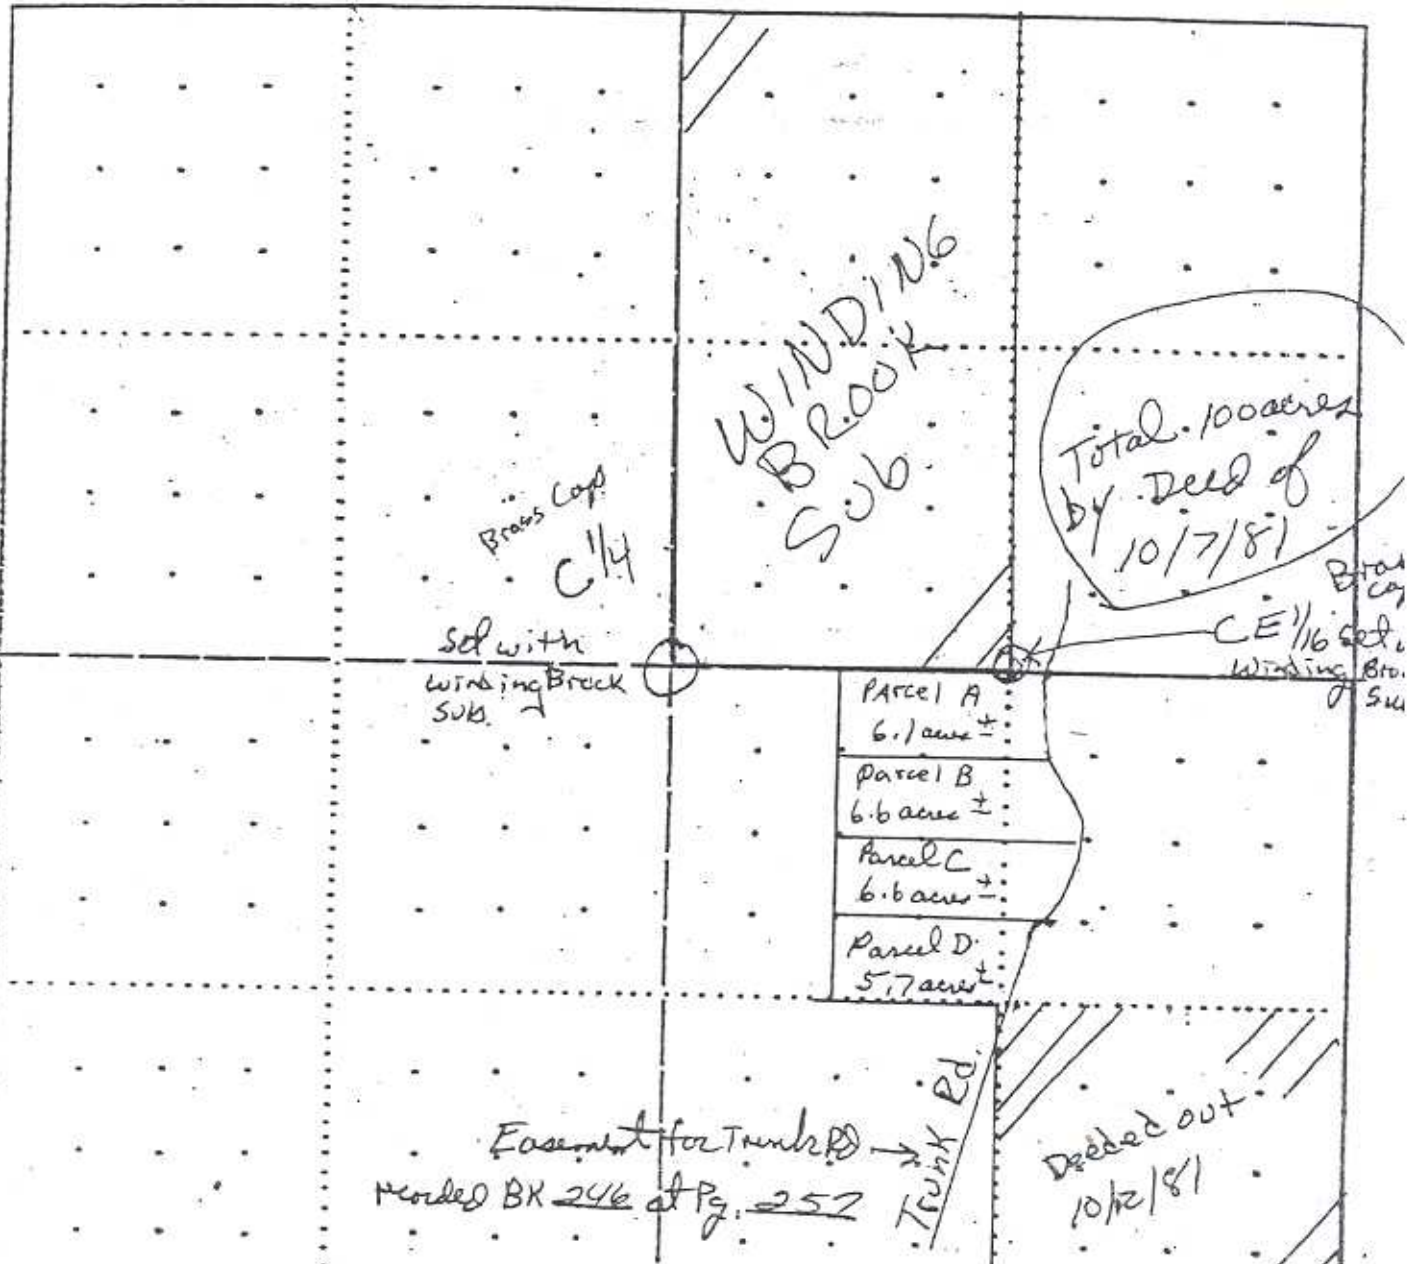 WINDING
BROOK
SUb
Total 100 acres
by Deed of
10/7/81
Brass Cap
C 1/4
Set with
Winding Brook
Sub.
CE 1/16 Set
Winding Bro
Su
Parcel A
6.1 acres ±
Parcel B
6.6 acres ±
Parcel C
6.6 acres ±
Parcel D
5.7 acres ±
Trunk Rd.
Easement for Trunk Rd →
recorded BK 246 at Pg. 257
Deeded out
10/12/81